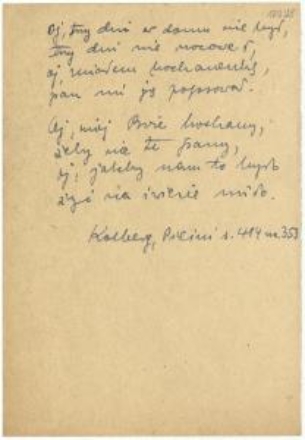 Oj, trzy dni w domu nie był,
trzy dni nie nocował,
oj, miałem kochaneczkę,
pan mi ją popsował.
Oj, mój Boże kochany,
żeby nie te pany,
oj, jakby nam to było
żyć na świecie miło.
Kolberg, Pieśni s. 414 nr 353